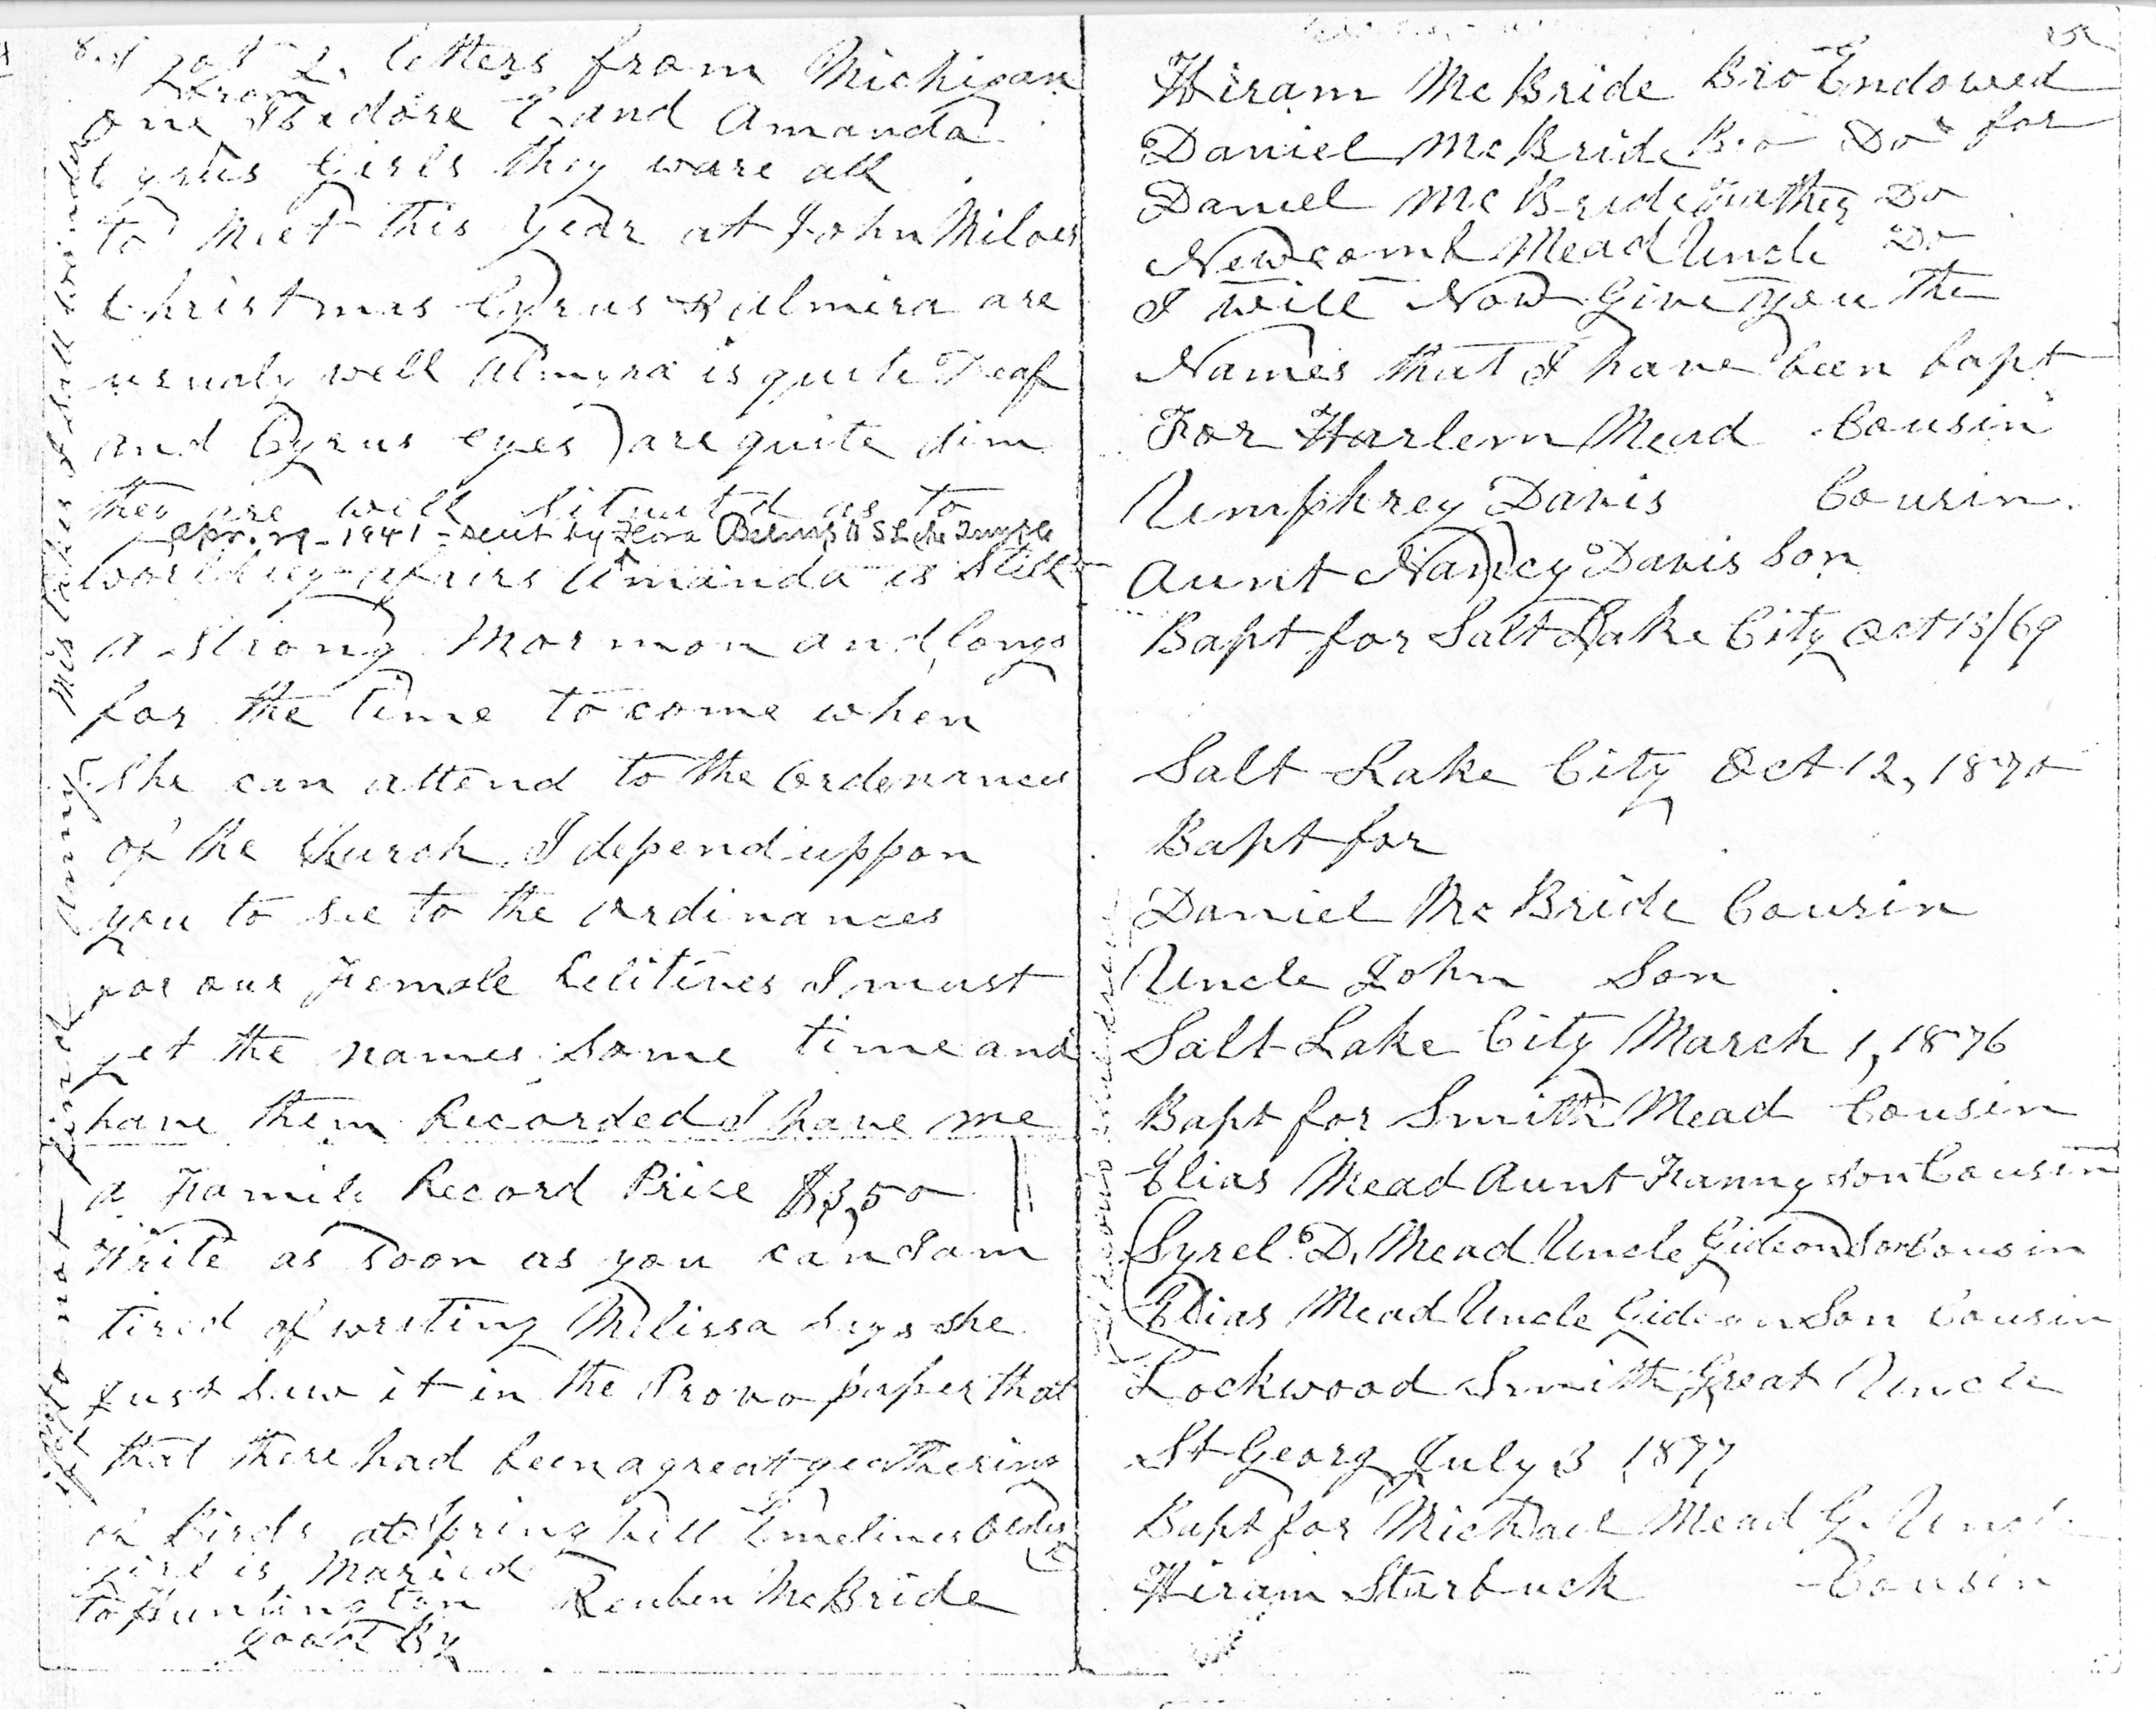 got 2 letters from Michigan
from
one Isadore C and Amanda
Girls they ware all
to Meet this Year at John Milars
Christmas Cyrus & almira are
usualy well almyra is quite Deaf
and Cyrus eyes are quite dim
they are well situatd as to
Apr. 29 - 1941 - sent by Flora Belnap S L Temple
worldley afairs Amanda is Still
a Strong Mormon and longs
for the time to come when
She can attend to the Ordenances
of the Church. I depend uppon
you to see to the ordinances
for our Female Relitives I must
get the names Some time and
have them Recorded I have me
a Famile Record Price $3,50
Write as soon as you can I am
tired of writing Milissa says she
just saw it in the Provo paper that
that there had been a great geathering
of Birds at Spring hill Emelines Oldes
girl is Maried
to Huntington Reuben McBride
good By
Mistakes I shall wonder
if you do not find many
Hiram McBride Bro Endowed
Daniel McBride Bro Do for
Daniel McBride Father Do
Newcomb Mead Uncle Do
I will Now Give you the
Names that I have been bapt
For Harlem Mead Cousin
Umphrey Davis Cousin.
Aunt Nancy Davis Son
Bapt for Salt Lake City Oct 13/69
Salt Lake City Oct 12, 1870
Bapt for
Daniel McBride Cousin
Uncle John Son
Salt Lake City March 1, 1876
Bapt for Smith Mead Cousin
Elias Mead Aunt Fanny son Cousin
Syrel D. Mead Uncle Gideon Son Cousin
Elias Mead Uncle Gideon Son Cousin
Lockwood Smith Great Uncle
St Georg July 3 1877
Bapt for Michael Mead G. Uncle
Hiram Starbuck Cousin